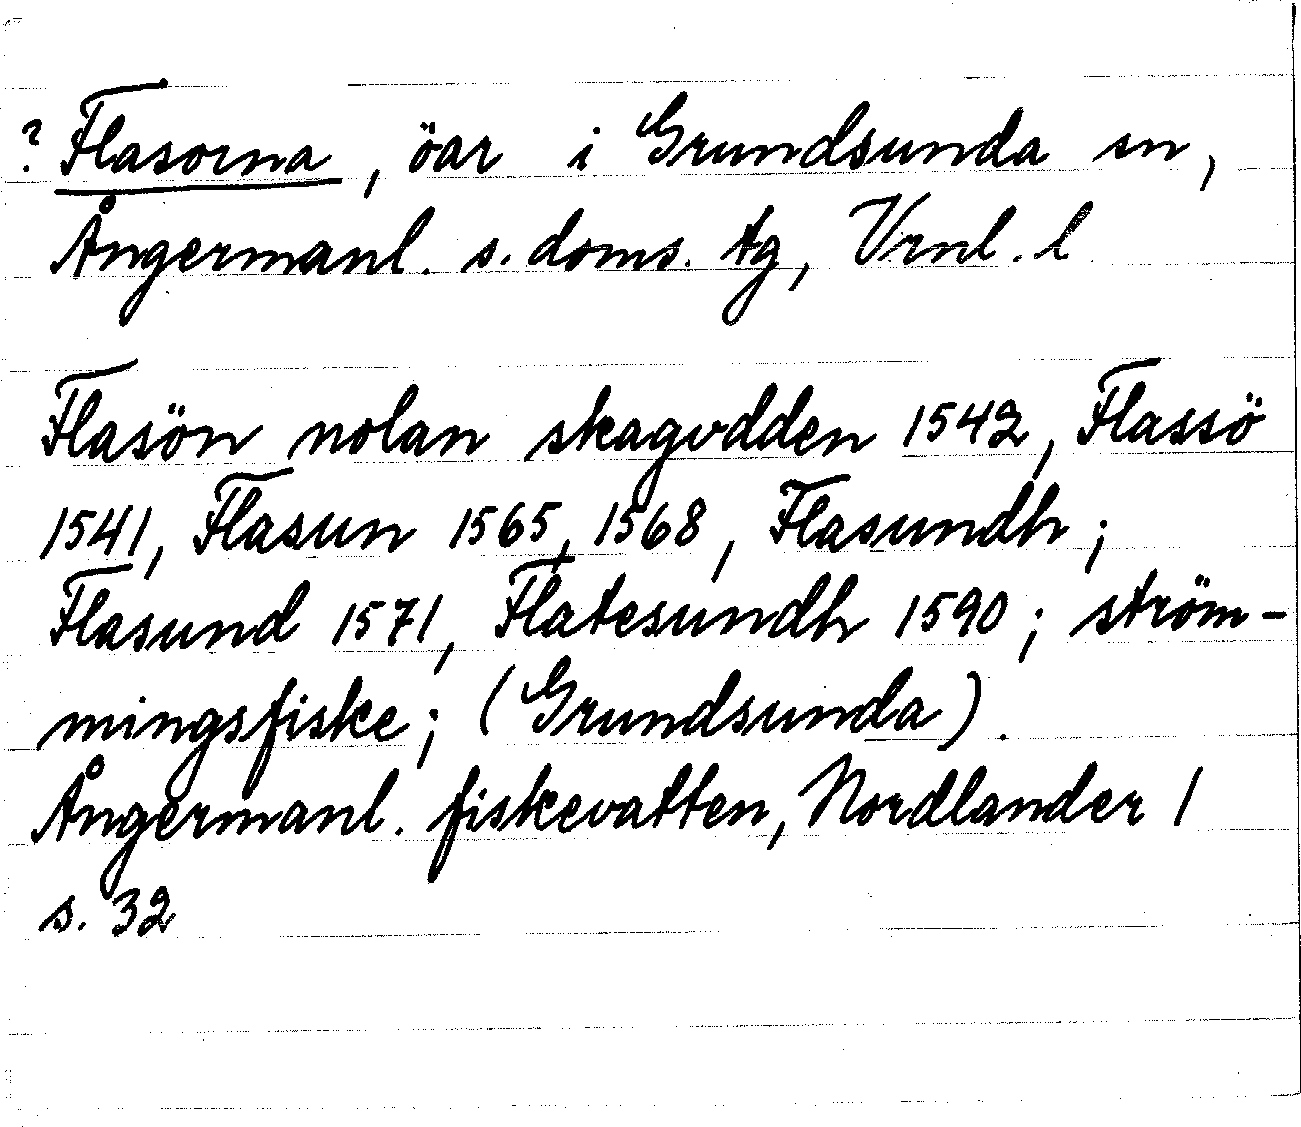 ? Flasorna, öar i Grundsunda sn,
Ångermanl. s. doms. tg, Vrnl. l
Flasön nolan skagodden 1542, Flassö
1541, Flasun 1565, 1568, Flasundh;
Flasund 1571, Flatesundh 1590; ström-
mingsfiske; (Grundsunda).
Ångermanl. fiskevatten, Nordlander 1
s. 32